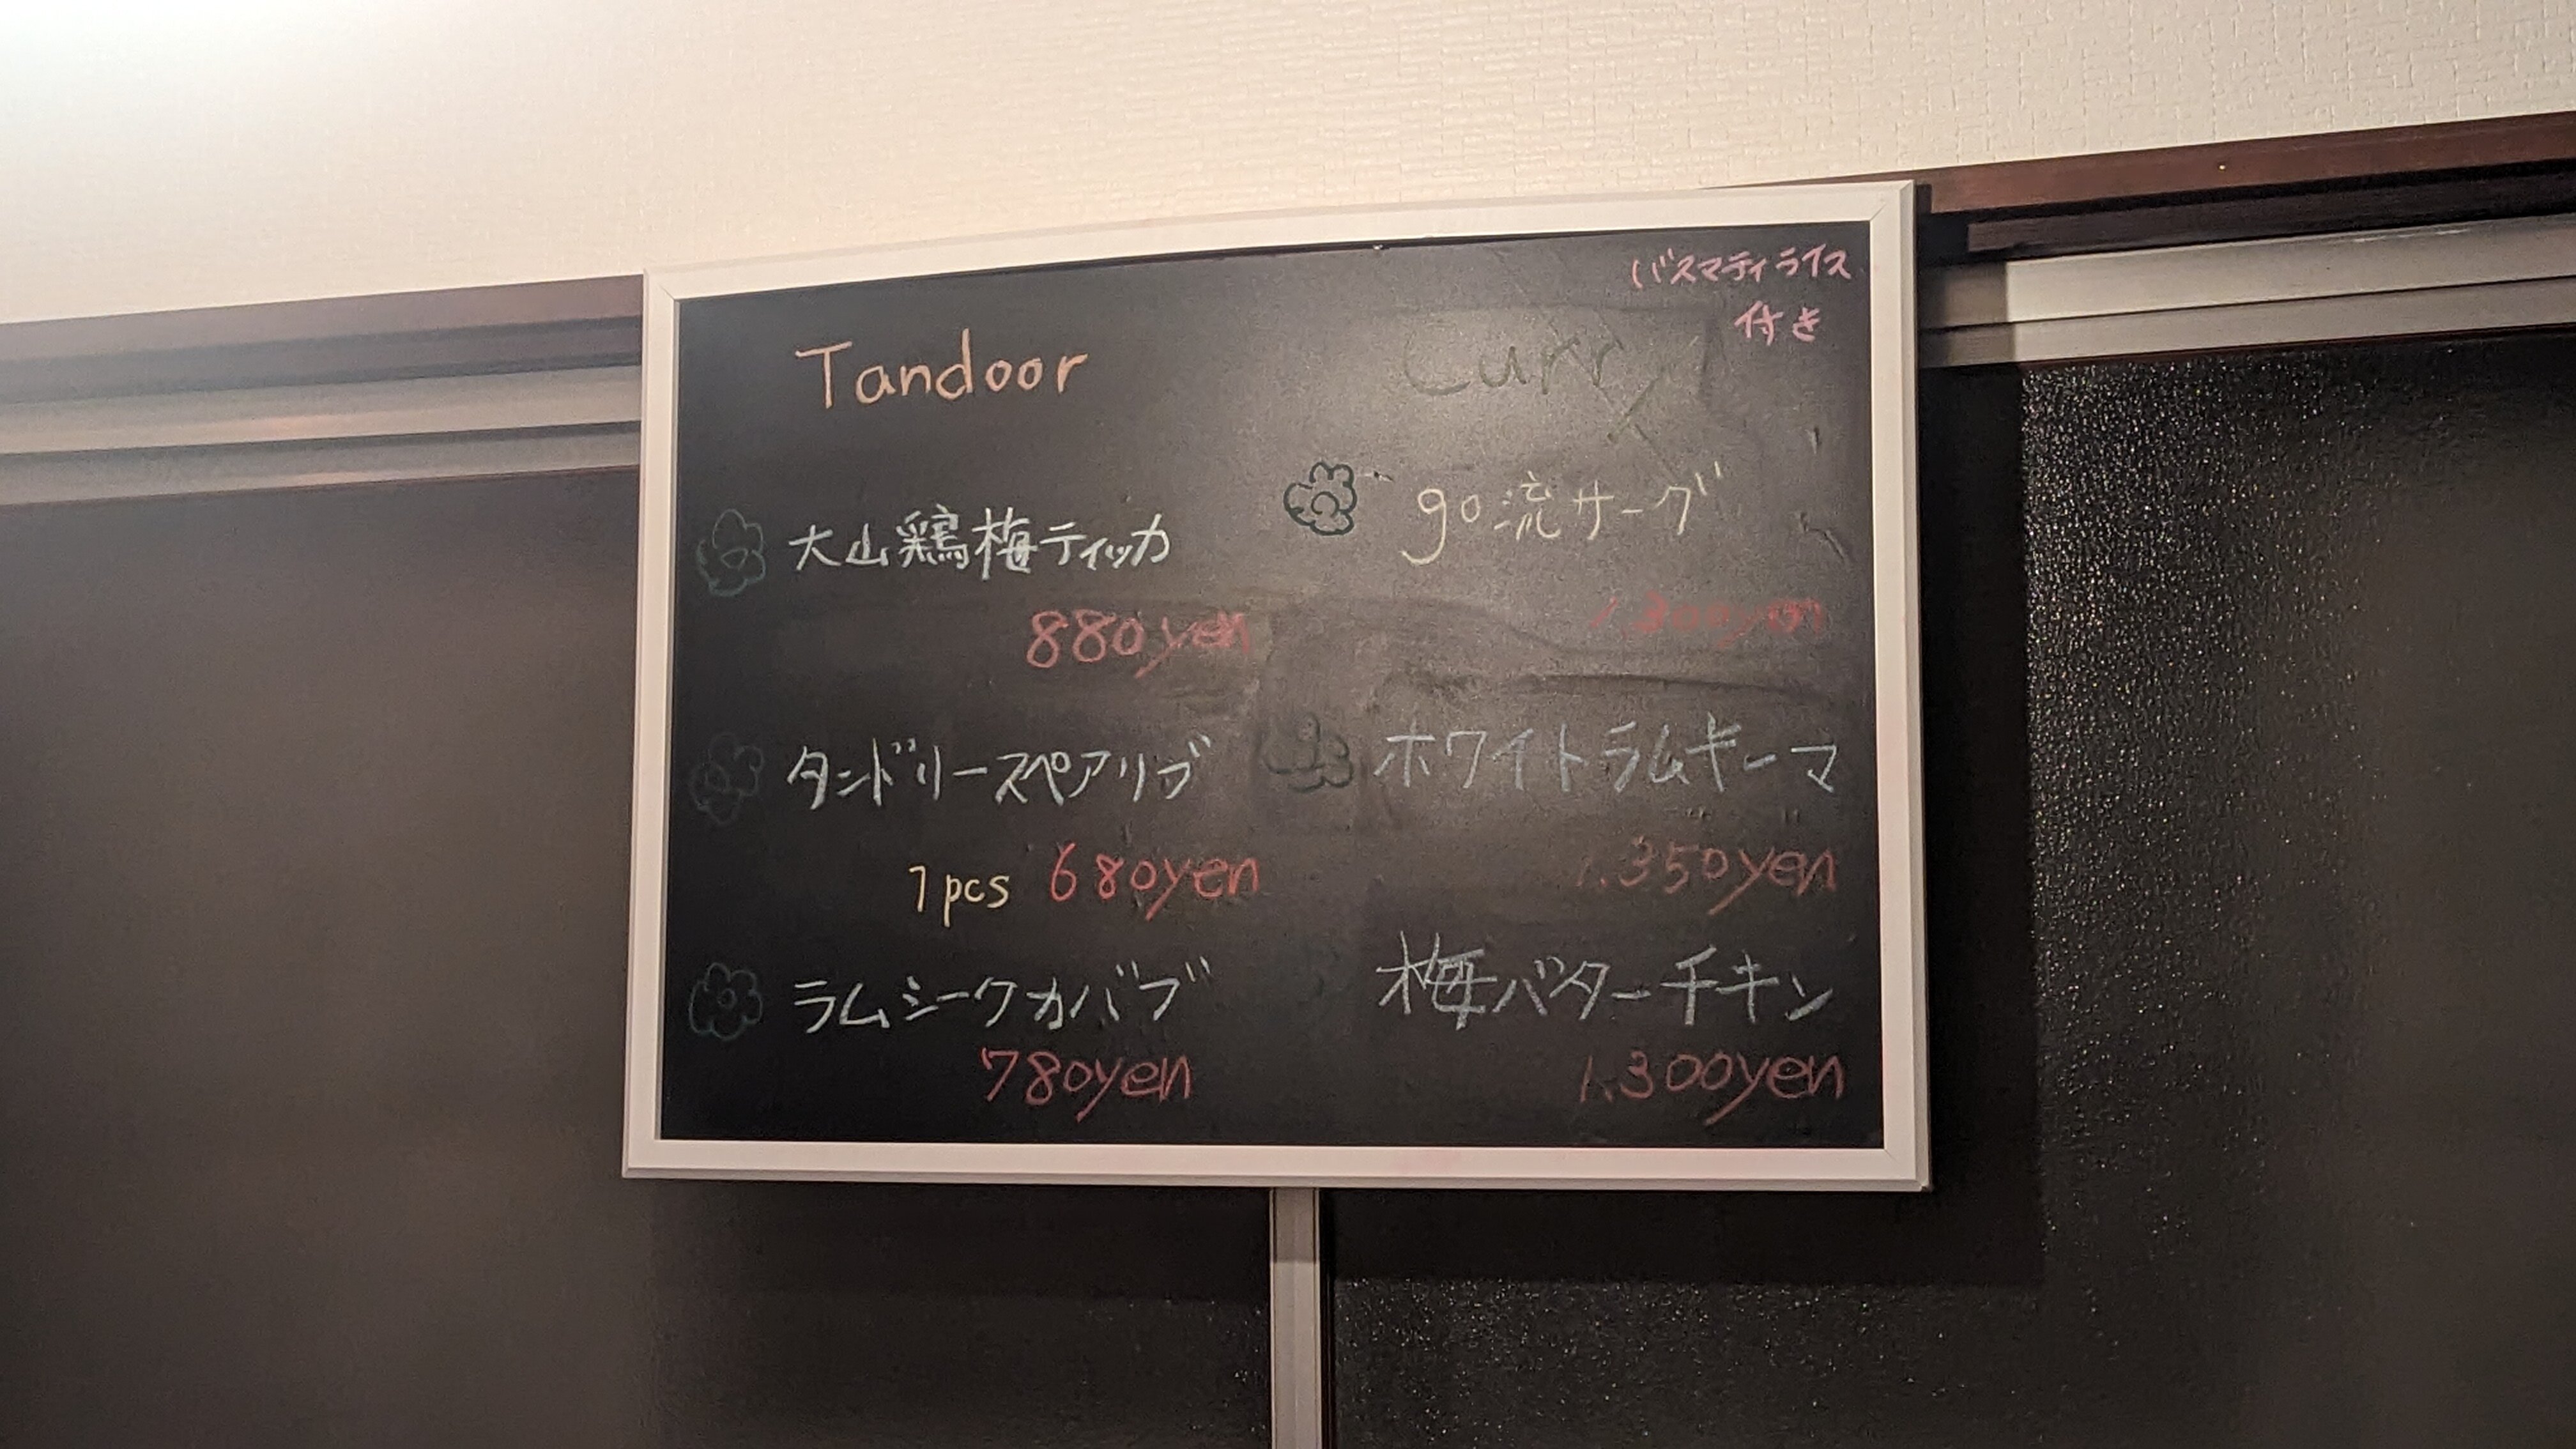 Tandoor
大山鶏梅ティッカ
880yen
タンドリースペアリブ
1pcs 680yen
ラムシークカバブ
780yen
バスマティライス
付き
Curry
go流サーグ
1.300yen
ホワイトラムキーマ
1.350yen
梅バターチキン
1.300yen